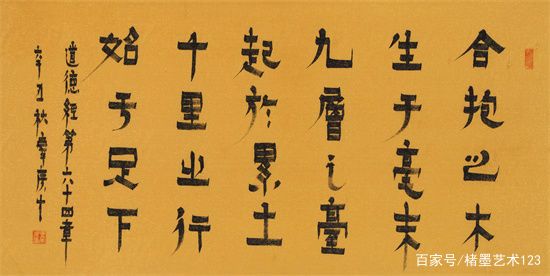 合抱之木
生于毫末
九層之臺
起於累土
千里之行
始于足下
道德經第六十四章
辛丑秋
百家号/楮墨艺术123